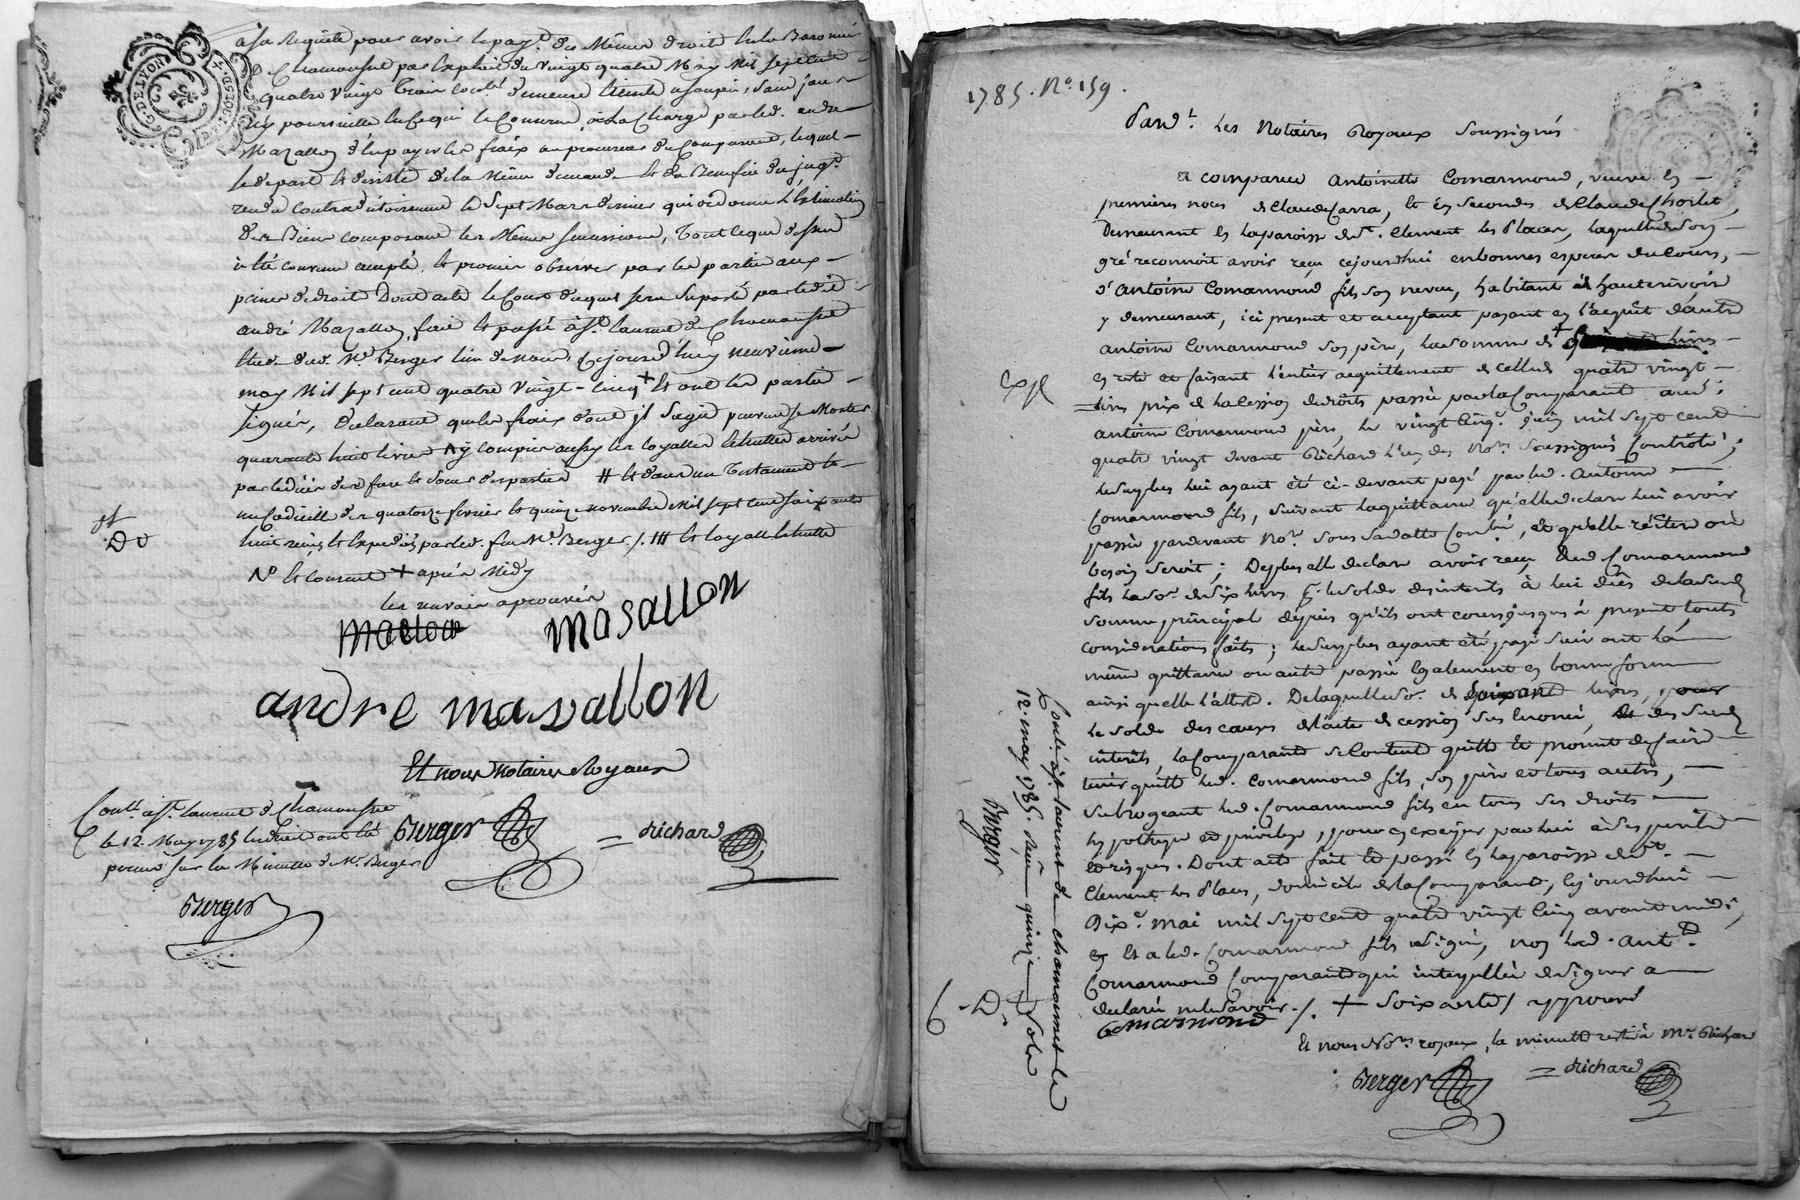 G. DE LYON
à sa requête pour avoir le pay.t des Mêmes droits en la Baronnie
de Chamousset par Exploit du vingt quatre May Mil sept cent
quatre vingt trois
Mazallon les frais au procureur du Comparant, lequel
se départ et désiste de la Même demande et du Benefice du jug.t
rendu contradictoirement le Sept Mars dernier qui ordonne L'Estimation
des Biens composant les Mêmes successions, Tout ce que dessus
a été convenu accepté, et promis observer par les parties aux
peines de droit Dont acte le Cout duquel sera suporté par ledit
andré Mazallon, fait et passé à S.t laurent de Chamousset
Etude dud. M.e Berger l'un de nous, Cejourd'huy neuvieme
may Mil sept cent quatre vingt-cinq + et ont les parties
signés, declarant que les frais dont il s'agit
quarante huit livres
# et d'avec un Testament et
un Codicille des quatorze fevrier et quinze novembre Mil sept cent soixante
huit reçus et Expediés par led. feu M.e Berger /. ### et loyalle
N.o et Consent + après Midy
les renvois aprouvés
masallon
andre masallon
Et nous Notaires Royaux
Berger = Richard
Con.lé à S.t laurent de Chamousset
le 12. May 1785 les droits ont été
perçus sur la Minute de M.e Berger
Berger
1785. N.o 159.
Pard.t les Notaires Royaux Soussignés
a comparue Antoinette Comarmond, veuve en
premieres noces de Claude Carra, et en secondes de Claude Chollet,
Demeurant en la paroisse de S.t Clement les Places, laquelle de son
gré reconnoit avoir reçu cejourdhui en bonnes especes du cours,
d'Antoine Comarmond fils son neveu, habitant à hauterivoire
y demeurant, ici present et acceptant payant en l'acquit d'autre
antoine Comarmond son père, la somme de +
en reste et faisant l'entier acquittement de celle de quatre vingt
livres prix de la Cession de droits passée par la Comparante aud.
antoine Comarmond père, le vingt cinq juin mil sept cent
quatre vingt devant Richard l'un des No.res Soussignés Controlé;
le surplus lui ayant été ci-devant payé par led. antoine
Comarmond fils, suivant la quittance qu'elle declare lui avoir
passée pardevant No.re sous sa datte Con.lée, et qu'elle réitere où
besoin seroit; De plus elle declare avoir reçu dud Comarmond
fils la so.e de six livres p.r le solde des interets à lui dûes de la susd
somme principal depuis qu'ils ont cours jusques à present, toute
considerations faite; le surplus ayant été payé suivant la
même quittance ou autre passée également en bonne forme
ainsi quelle l'atteste. De laquelle so.e de soixante livres, pour
le solde des causes de l'acte de cession sus enoncé, et des susd
interets, la Comparante se Contente quitte et promet de faire
tenir quitte led. Comarmond fils, son père et tous autres,
subrogeant led. Comarmond fils en tous ses droits
hypoteque et privilege, pour en exiger par lui à ses perils
et risques. Dont acte fait et passé en la paroisse de S.t
Clement les Places, domicile de la Comparante, cejourdhui
Dix.e mai mil sept cent quatre vingt cinq avant midi,
et a led. Comarmond fils signé, non lad. Ant.te
Comarmond Comparante qui interpellée de signer a
declaré ne le savoir. /. + soixante / approuvé
Comarmond
Et nous No.res royaux, la minute restée à M.e Richard
Berger = Richard
Exp.
Con.lé à S.t laurent de chamousset le
12. may 1785. reçu quinze sols
Berger
6 - D.